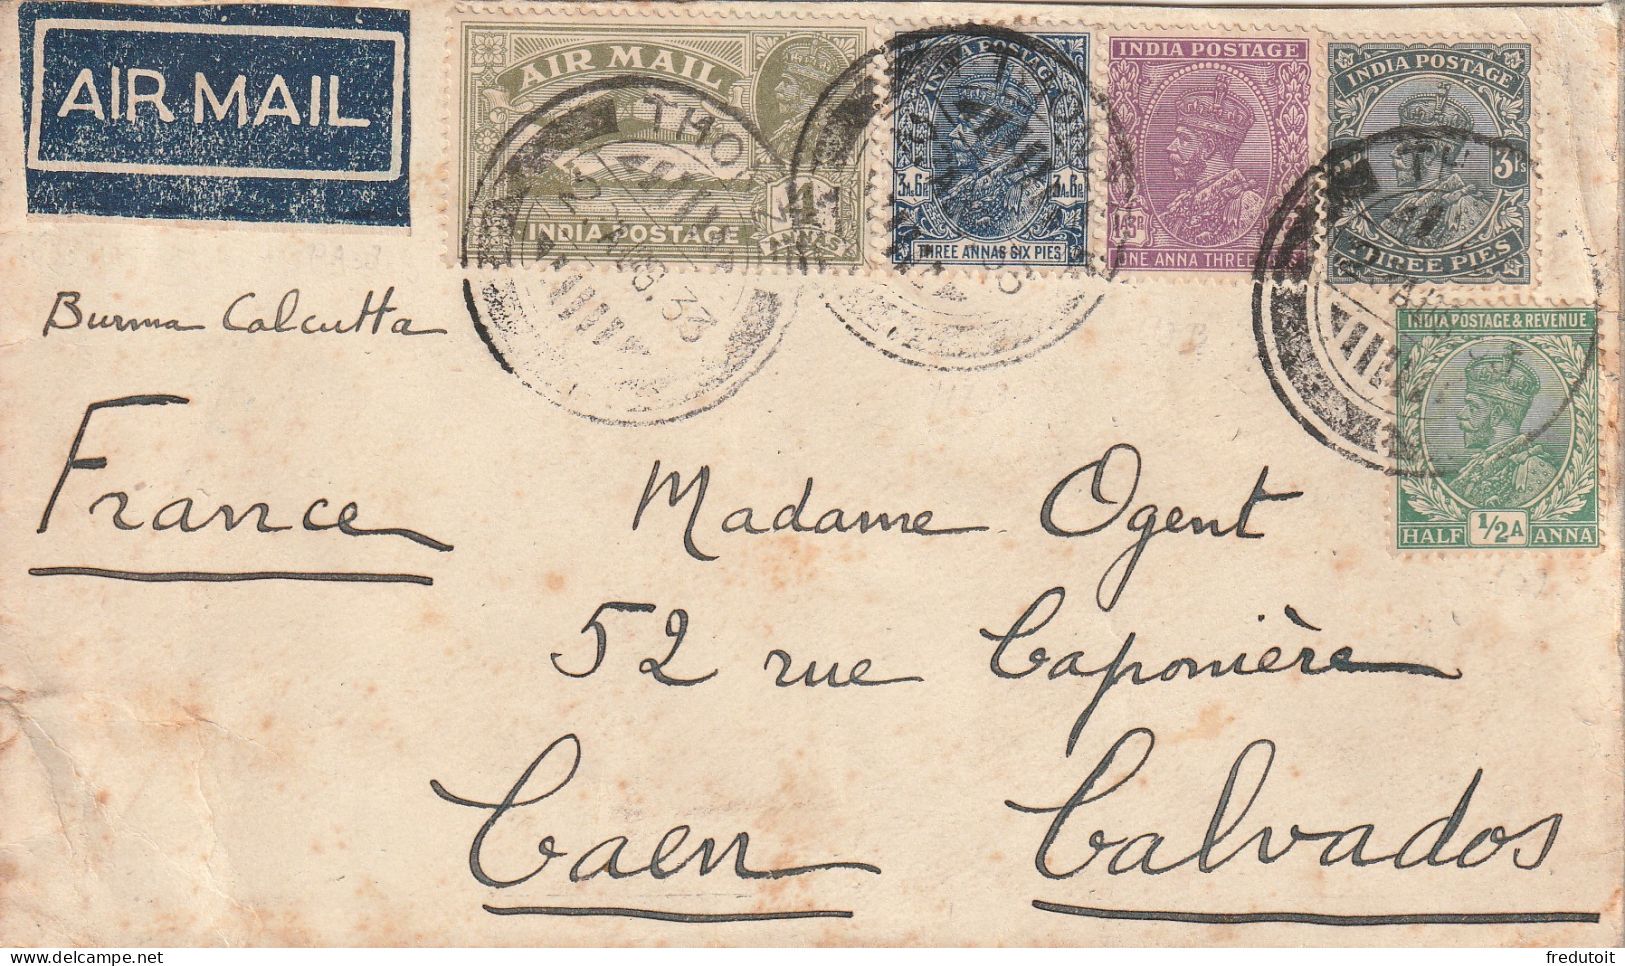 AIR MAIL
AIR MAIL
INDIA POSTAGE
4
ANNAS
INDIA POSTAGE
3A.6P 3A.6P
THREE ANNAS SIX PIES
INDIA POSTAGE
ONE ANNA THREE
INDIA POSTAGE
3Ps
THREE PIES
INDIA POSTAGE & REVENUE
HALF 1/2A ANNA
AUG. 33
Burma Calcutta
France
Madame Ogent
52 rue Caponière
Caen Calvados
fredutoit